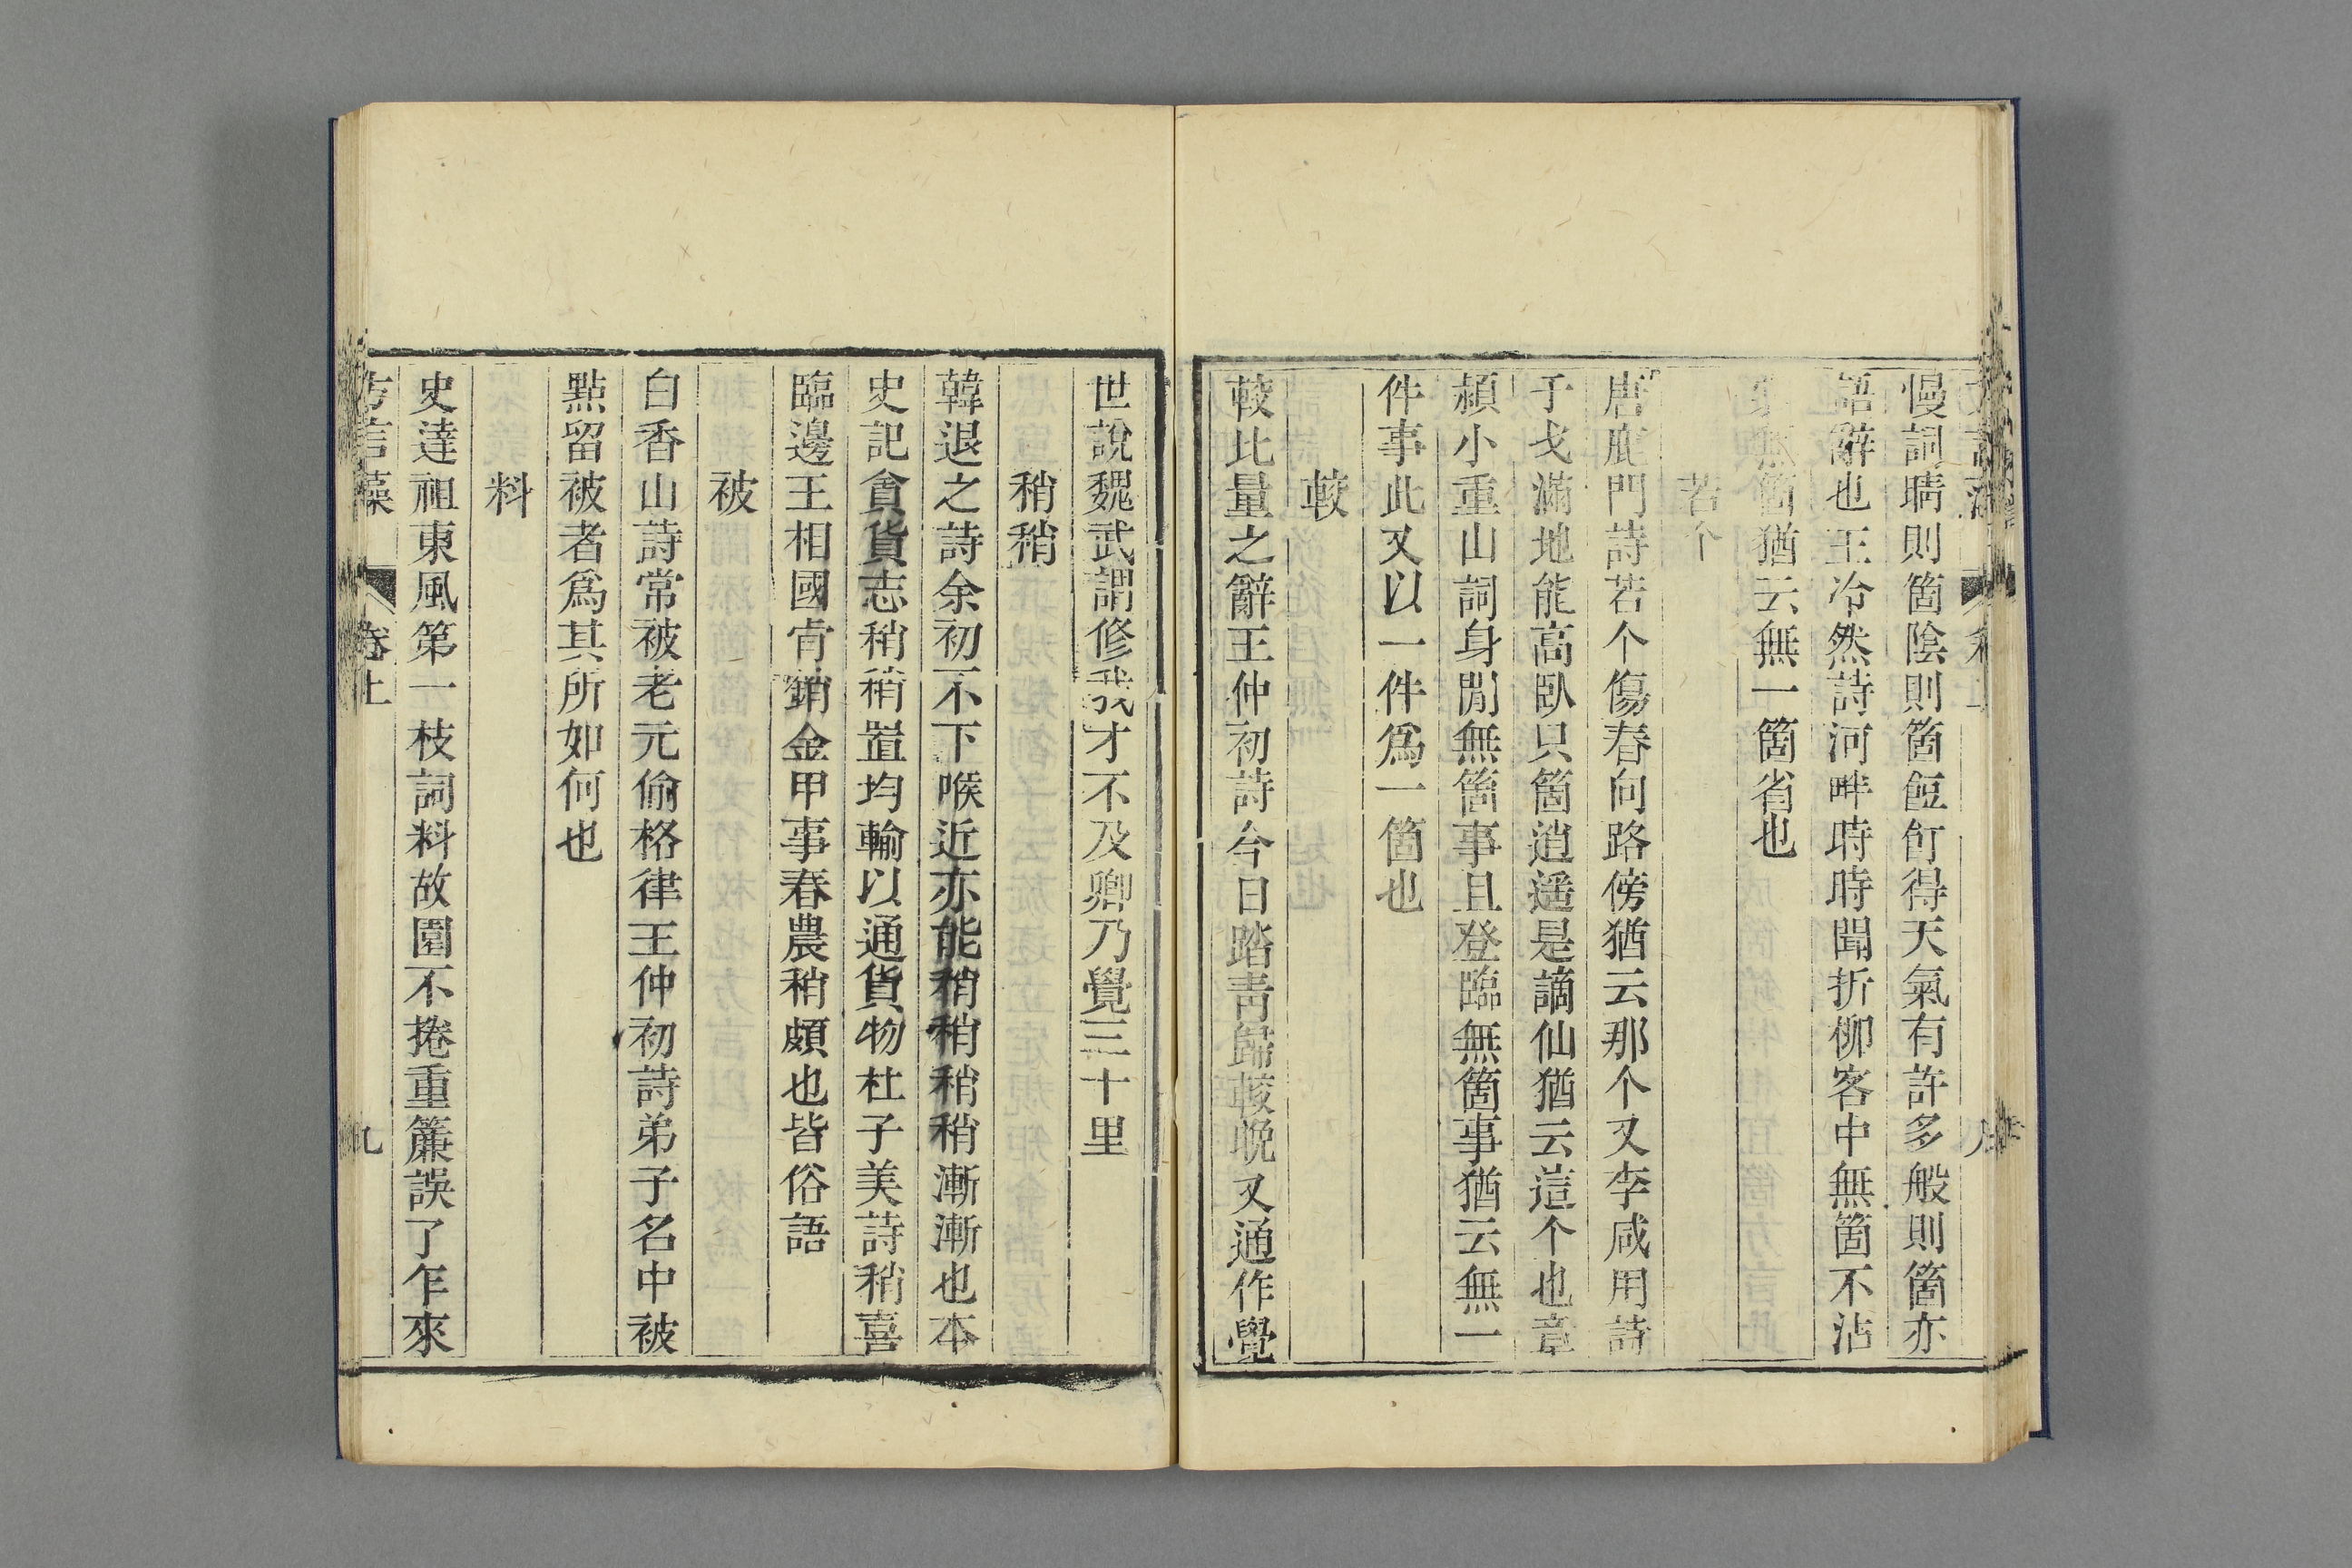 慢詞晴則箇陰則箇餖飣得天氣有許多般則箇亦
語辭也王冷然詩河畔時時聞折柳客中無箇不沾
無箇猶云無一箇省也
若个
唐鹿門詩若个傷春向路傍猶云那个又李咸用詩
干戈滿地能高臥只箇逍遥是謫仙猶云這个也章
頳小重山詞身閒無箇事且登臨無箇事猶云無一
件事此又以一件爲一箇也
較
較比量之辭王仲初詩今日踏青歸較晚又通作覺
世說魏武謂修我才不及卿乃覺三十里
稍稍
韓退之詩余初不下喉近亦能稍稍稍稍漸漸也本
史記食貨志稍稍置均輸以通貨物杜子美詩稍喜
臨邊王相國肯銷金甲事春農稍頗也皆俗語
被
白香山詩常被老元偷格律王仲初詩弟子名中被
點留被者爲其所如何也
料
史達祖東風第一枝詞料故園不捲重簾誤了乍來
方言藻 卷上 九